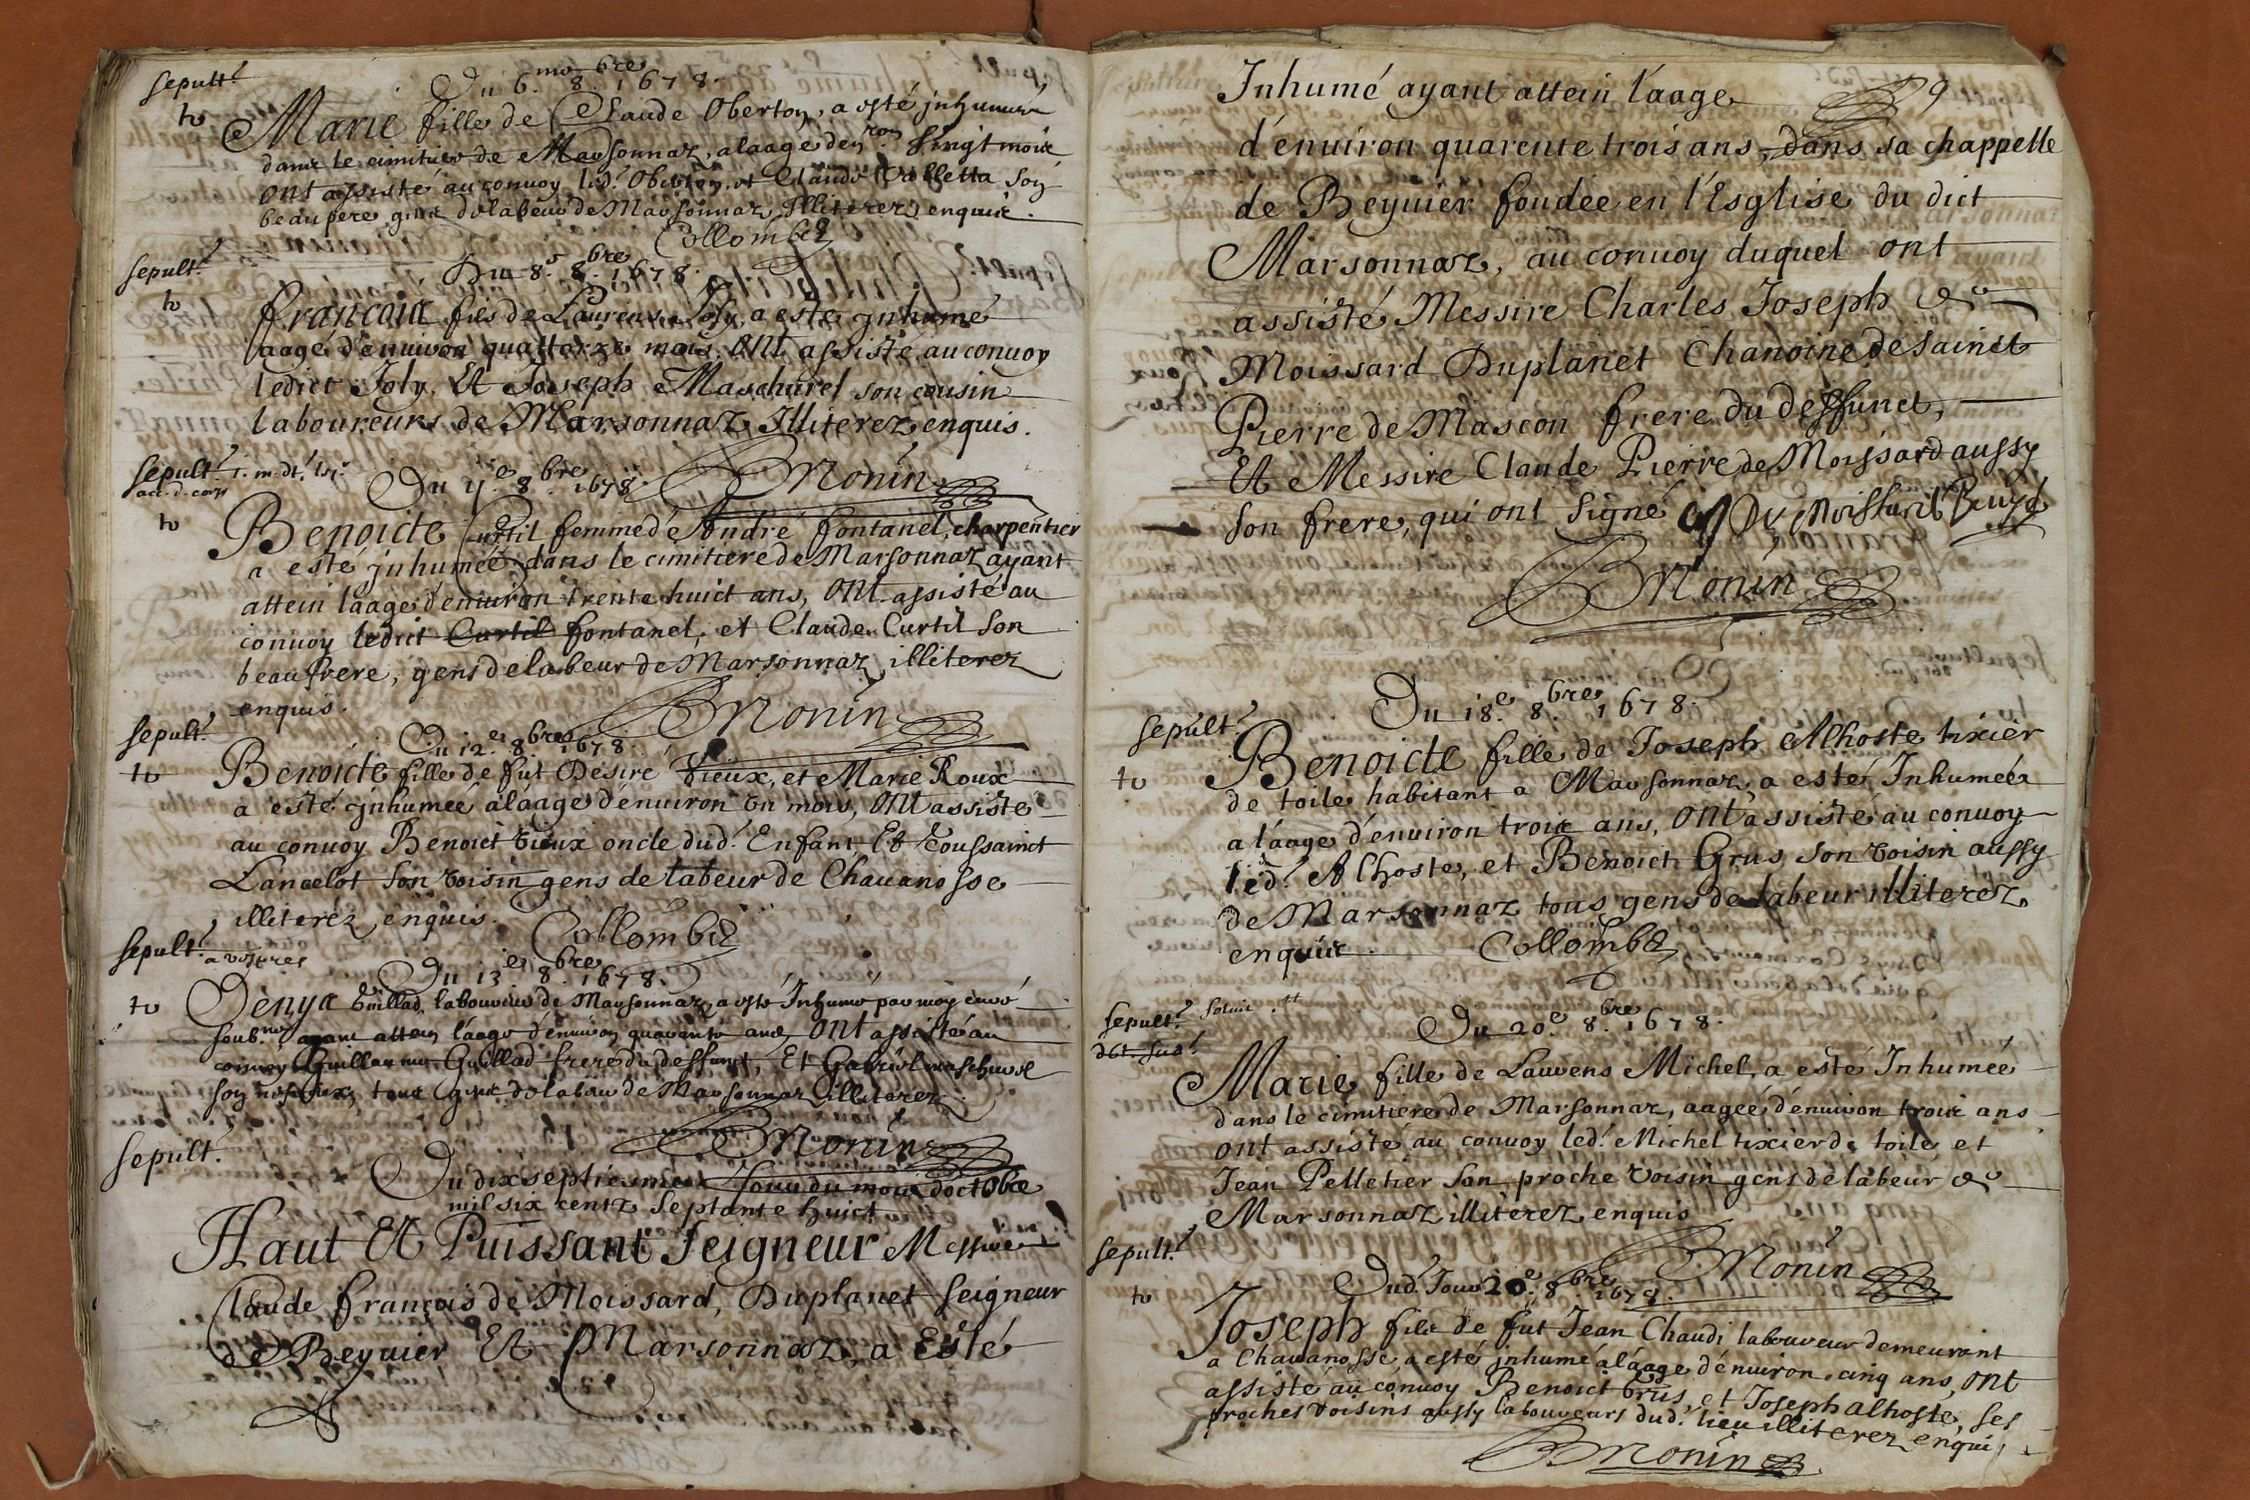 sepult.e
Du 6.mo 8.bre 1678.
to
Marie fille de Claude Oberton, a esté jnhumée
dans le cimitiere de Marsonnaz, a laage den.ron vingt mois
ont assisté au convoy led.t Oberton et Claude Colletta son
beau pere gens de labeur de Marsonnaz Illiterez enquis.
Collombet
sepult.e
Du 8.e 8.bre 1678.
to
françois fils de Laurens Joly, a esté jnhumé
aagé d'enuiron quattorze mois, ont assisté au conuoy
ledict Joly, Et Joseph Maschurel son cousin
laboureurs de Marsonnaz Illiterez enquis.
BMonin
sepult.e
Du 11.e 8.bre 1678.
to
Benoicte Curtil femme de André fontanel, charpentier
a esté jnhumée dans le cimitiere de Marsonnaz ayant
attein laage d'enuiron trente huict ans, ont assisté au
conuoy ledict Curtil fontanel, et Claude Curtil son
beaufrere, gens de labeur de Marsonnaz illiterez
enquis.
BMonin
sepult.e
Du 12.e 8.bre 1678.
to
Benoicte fille de fut Desiré Vieux, et Marie Roux
a esté jnhumeé a laage d'enuiron vn mois, ont assisté
au conuoy Benoict Vieux oncle dud.t Enfant Et Toussainct
Lancelot son voisin gens de labeur de Chauanosse
illiterez enquis.
Collombet
sepult.e
Du 13.e 8.bre 1678.
to
Denys Guillad, laboureur de Marsonnaz, a esté Inhumé par moy curé
soub.né ayant attein l'aage d'enuiron quarante ans ont assisté au
conuoy Guillaume Guillad frere du deffunt, Et Gabriel maschurel
son nepueux, tous gens de labeur de Marsonnaz illiterez.
BMonin
sepult.e
Du dixseptiesme Jour du mois doctobre
mil six centz septante huict
Haut Et Puissant Seigneur Messire
Claude françois de Moissard, Duplanet seigneur
de Beyuier Et Marsonnaz, a Esté
9
Inhumé ayant attein l'aage
d'énuiron quarente trois ans, dans sa chappelle
de Beyuier fondée en l'Esglise du dict
Marsonnaz, au conuoy duquel ont
assisté Messire Charles Joseph de
Moissard Duplanet Chanoine de Sainct
Pierre de Mascon frere du deffunct,
Et Messire Claude Pierre de Moissard aussy
son frere, qui ont signé
BMonin
Du 18.e 8.bre 1678.
sepult.e
to
Benoicte fille de Joseph Alhoste tixier
de toile habitant a Marsonnaz, a esté Inhumée
a l'aage d'enuiron trois ans, ont assisté au conuoy
led.t Alhoste, et Benoict Grus son voisin aussy
de Marsonnaz tous gens de labeur illiterez
enquis.
Collombet
sepult.e
Du 20.e 8.bre 1678.
Marie fille de Laurens Michel, a esté Inhumée
dans le cimitiere de Marsonnaz, aagée d'enuiron trois ans
ont assisté au conuoy led.t Michel tixier de toile et
Jean Pelletier son proche voisin gens de labeur de
Marsonnaz illiterez enquis
BMonin
sepult.e
Dud.t Jour 20.e 8.bre 1678.
to
Joseph fils de fut Jean Chaudi laboureur demeurant
a Chauanosse, a esté jnhumé a l'aage d'énuiron cinq ans, ont
assisté au conuoy Benoict Grus, et Joseph alhoste, ses
proches voisins aussy laboureurs dud.t lieu illiterez enquis
BMonin